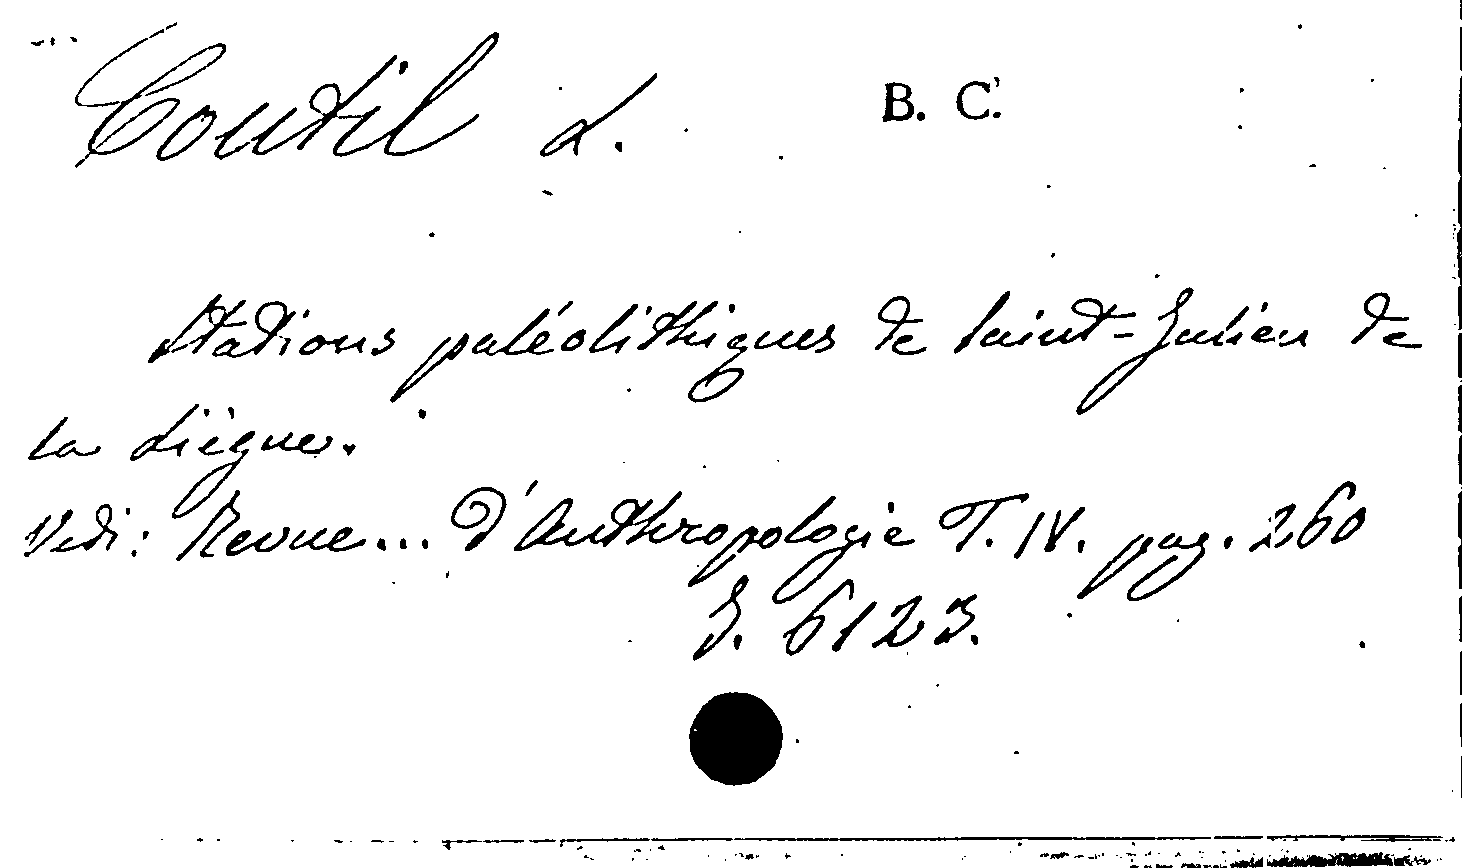 Coutil L. B. C.
Stations paléolithiques de Saint-Julien de
la Liègue.
Vedi: Revue... d'Anthropologie T. IV. pag. 260
J. 6123.